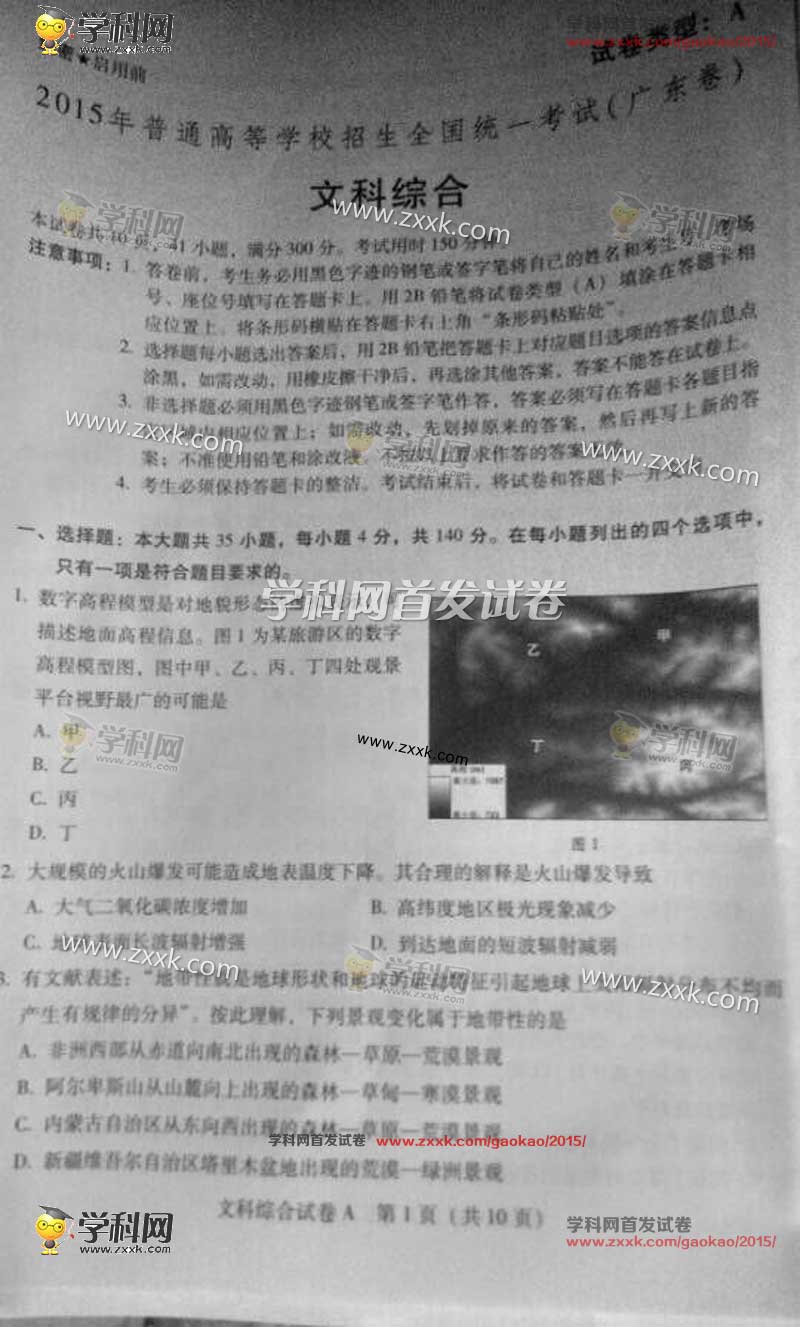 学科网
www.zxxk.com
学科网首发试卷
www.zxxk.com/gaokao/2015/
★启用前
试卷类型：A
2015年普通高等学校招生全国统一考试（广东卷）
文科综合
www.zxxk.com
学科网
zxxk.com
本试卷共10页，41小题，满分300分。考试用时150分钟。
注意事项：1. 答卷前，考生务必用黑色字迹的钢笔或签字笔将自己的姓名和考生 考场
号、座位号填写在答题卡上。用2B铅笔将试卷类型（A）填涂在答题卡相
应位置上。将条形码横贴在答题卡右上角“条形码粘贴处”。
2. 选择题每小题选出答案后，用2B铅笔把答题卡上对应题目选项的答案信息点
涂黑，如需改动，用橡皮擦干净后，再选涂其他答案，答案不能答在试卷上。
3. 非选择题必须用黑色字迹钢笔或签字笔作答，答案必须写在答题卡各题目指
相应位置上；如需改动，先划掉原来的答案，然后再写上新的答
www.zxxk.com
学科网
zxxk.com
www.zxxk.com
案；不准使用铅笔和涂改液。不按以上要求作答的答案
4. 考生必须保持答题卡的整洁。考试结束后，将试卷和答题卡一并交
一、选择题：本大题共35小题，每小题4分，共140分。在每小题列出的四个选项中，
只有一项是符合题目要求的。
学科网首发试卷
1. 数字高程模型是对地貌形态
描述地面高程信息。图1为某旅游区的数字
高程模型图，图中甲、乙、丙、丁四处观景
平台视野最广的可能是
A. 甲
B. 乙
C. 丙
D. 丁
学科网
zxxk.com
www.zxxk.com
乙
甲
丁
丙
学科网
zxxk.com
图1
2. 大规模的火山爆发可能造成地表温度下降。其合理的解释是火山爆发导致
A. 大气二氧化碳浓度增加 B. 高纬度地区极光现象减少
C. 地球表面长波辐射增强 D. 到达地面的短波辐射减弱
www.zxxk.com
学科网
zxxk.com
www.zxxk.com
3. 有文献表述：“地带性就是地球形状和地球的 特征引起地球上 不均而
产生有规律的分异”。按此理解，下列景观变化属于地带性的是
A. 非洲西部从赤道向南北出现的森林—草原—荒漠景观
B. 阿尔卑斯山从山麓向上出现的森林—草甸—寒漠景观
C. 内蒙古自治区从东向西出现的森林—草原—荒漠景观
学科网首发试卷 www.zxxk.com/gaokao/2015/
D. 新疆维吾尔自治区塔里木盆地出现的荒漠—绿洲景观
文科综合试卷A 第1页（共10页）
学科网
www.zxxk.com
学科网首发试卷
www.zxxk.com/gaokao/2015/